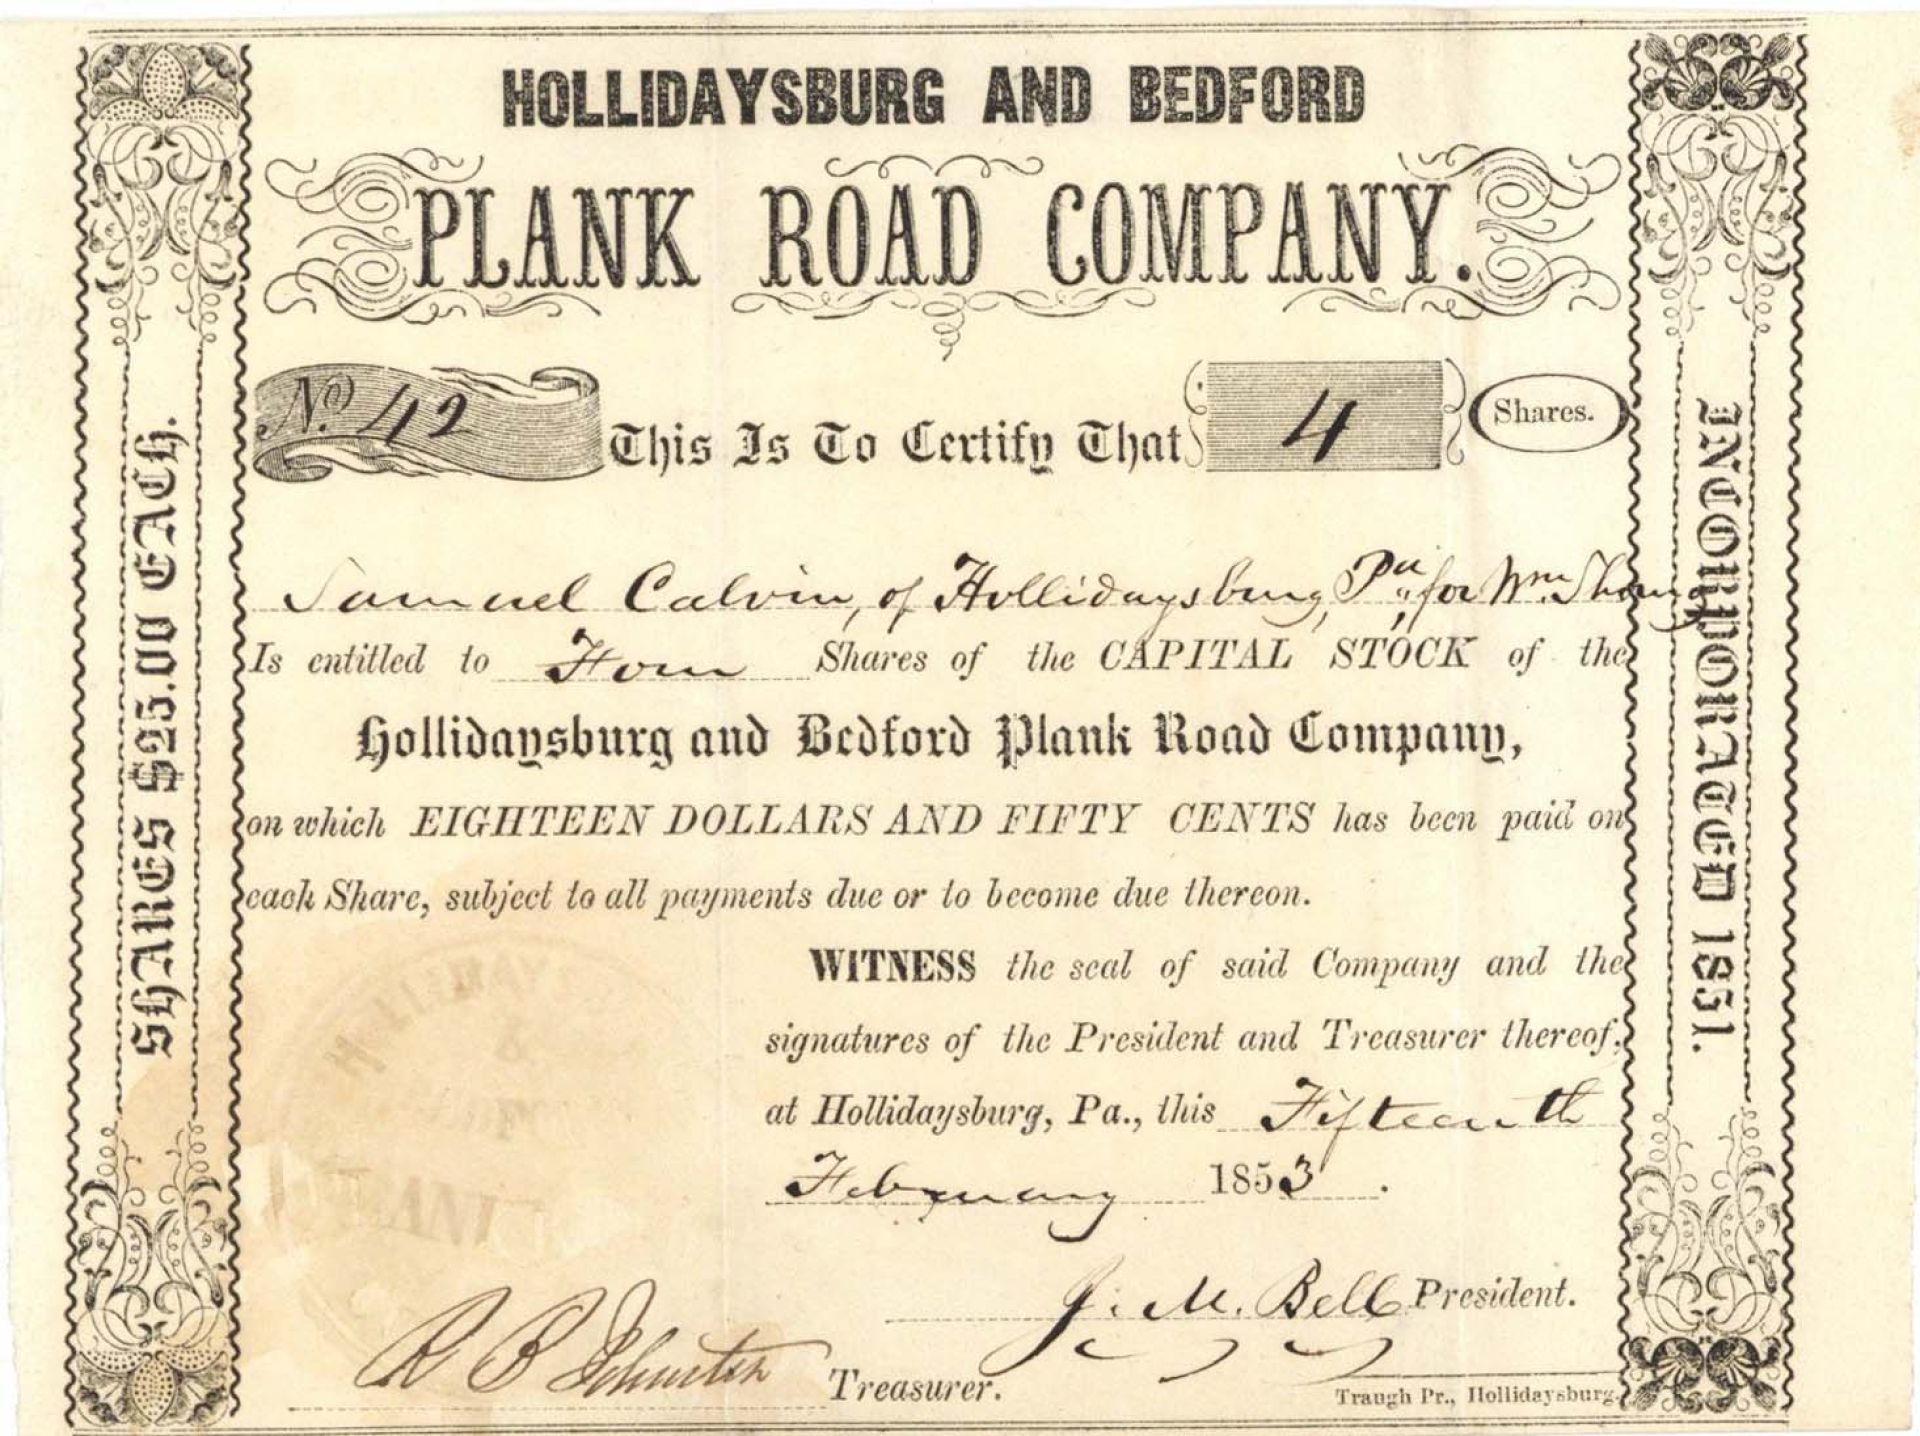 HOLLIDAYSBURG AND BEDFORD
PLANK ROAD COMPANY.
No. 42 This Is To Certify That 4 Shares.
Samuel Calvin, of Hollidaysburg, Pa. for Wm.
Is entitled to Four Shares of the CAPITAL STOCK of the
Hollidaysburg and Bedford Plank Road Company,
on which EIGHTEEN DOLLARS AND FIFTY CENTS has been paid on
each Share, subject to all payments due or to become due thereon.
WITNESS the seal of said Company and the
signatures of the President and Treasurer thereof,
at Hollidaysburg, Pa., this Fifteenth
February 1853.
J. M. Bell President.
R B Johnston Treasurer.
Traugh Pr., Hollidaysburg.
SHARES $25.00 EACH.
INCORPORATED 1851.